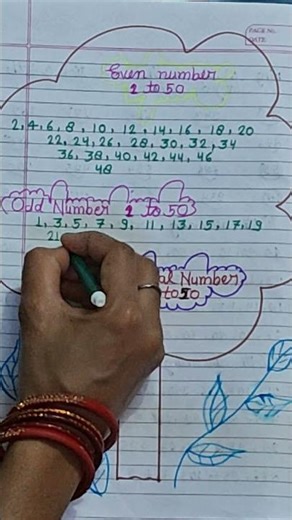 PAGE No.
DATE
Even number
1 to 50
2, 4, 6, 8, 10, 12, 14, 16, 18, 20
22, 24, 26, 28, 30, 32, 34
36, 38, 40, 42, 44, 46
48
Odd Number 1 to 50
1, 3, 5, 7, 9, 11, 13, 15, 17, 19
21
Number
to 50